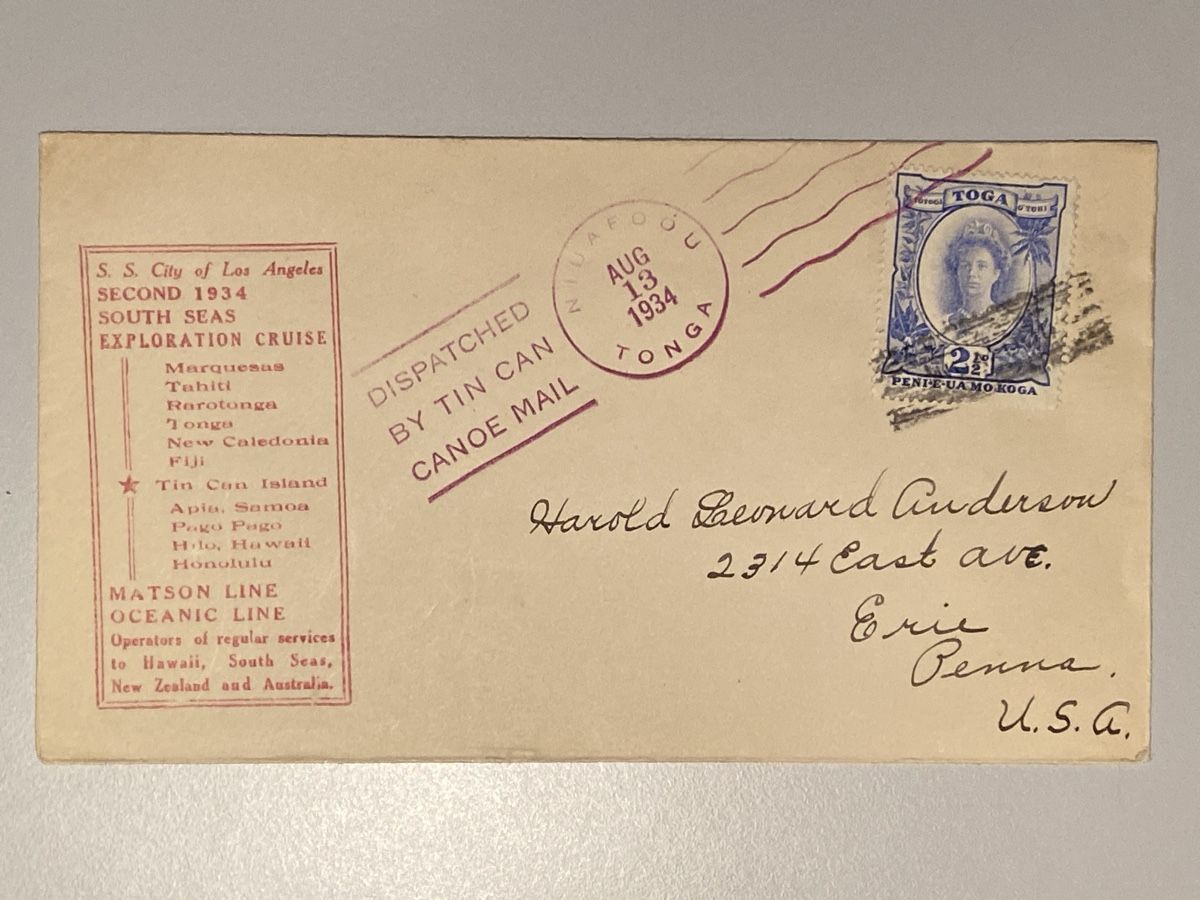 S. S. City of Los Angeles
SECOND 1934
SOUTH SEAS
EXPLORATION CRUISE
Marquesas
Tahiti
Rarotonga
Tonga
New Caledonia
Fiji
Tin Can Island
Apia, Samoa
Pago Pago
Hilo, Hawaii
Honolulu
MATSON LINE
OCEANIC LINE
Operators of regular services
to Hawaii, South Seas,
New Zealand and Australia.
DISPATCHED
BY TIN CAN
CANOE MAIL
NIUAFOOU
AUG
13
1934
TONGA
TOGA
2½
PENI-E-UA MO KOGA
Harold Leonard Anderson
2314 East Ave.
Erie
Penna.
U.S.A.